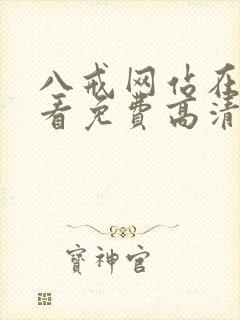 八戒网站在
看免费高清
寳神官